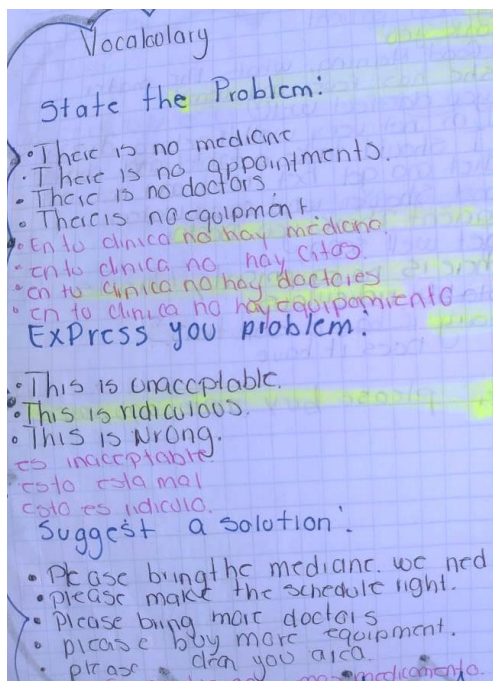 Vocabolary
State the Problem:
• There is no medicine
• There is no appointments.
• There is no doctors.
• There is no equipment
• En tu clinica no hay medicina.
• en tu clinica no hay citas.
• en tu clinica no hay doctores
• en tu clinica no hay equipamiento
ExPress you problem:
• This is unacceptable.
• This is ridiculous.
• This is Wrong.
es inaceptable.
esto esta mal
esto es ridiculo.
Suggest a solution:
• Please bring the medicine. we ned
• please make the schedule right.
• Please bring more doctors
• please buy more equipment.
• please you area.
medicamento.